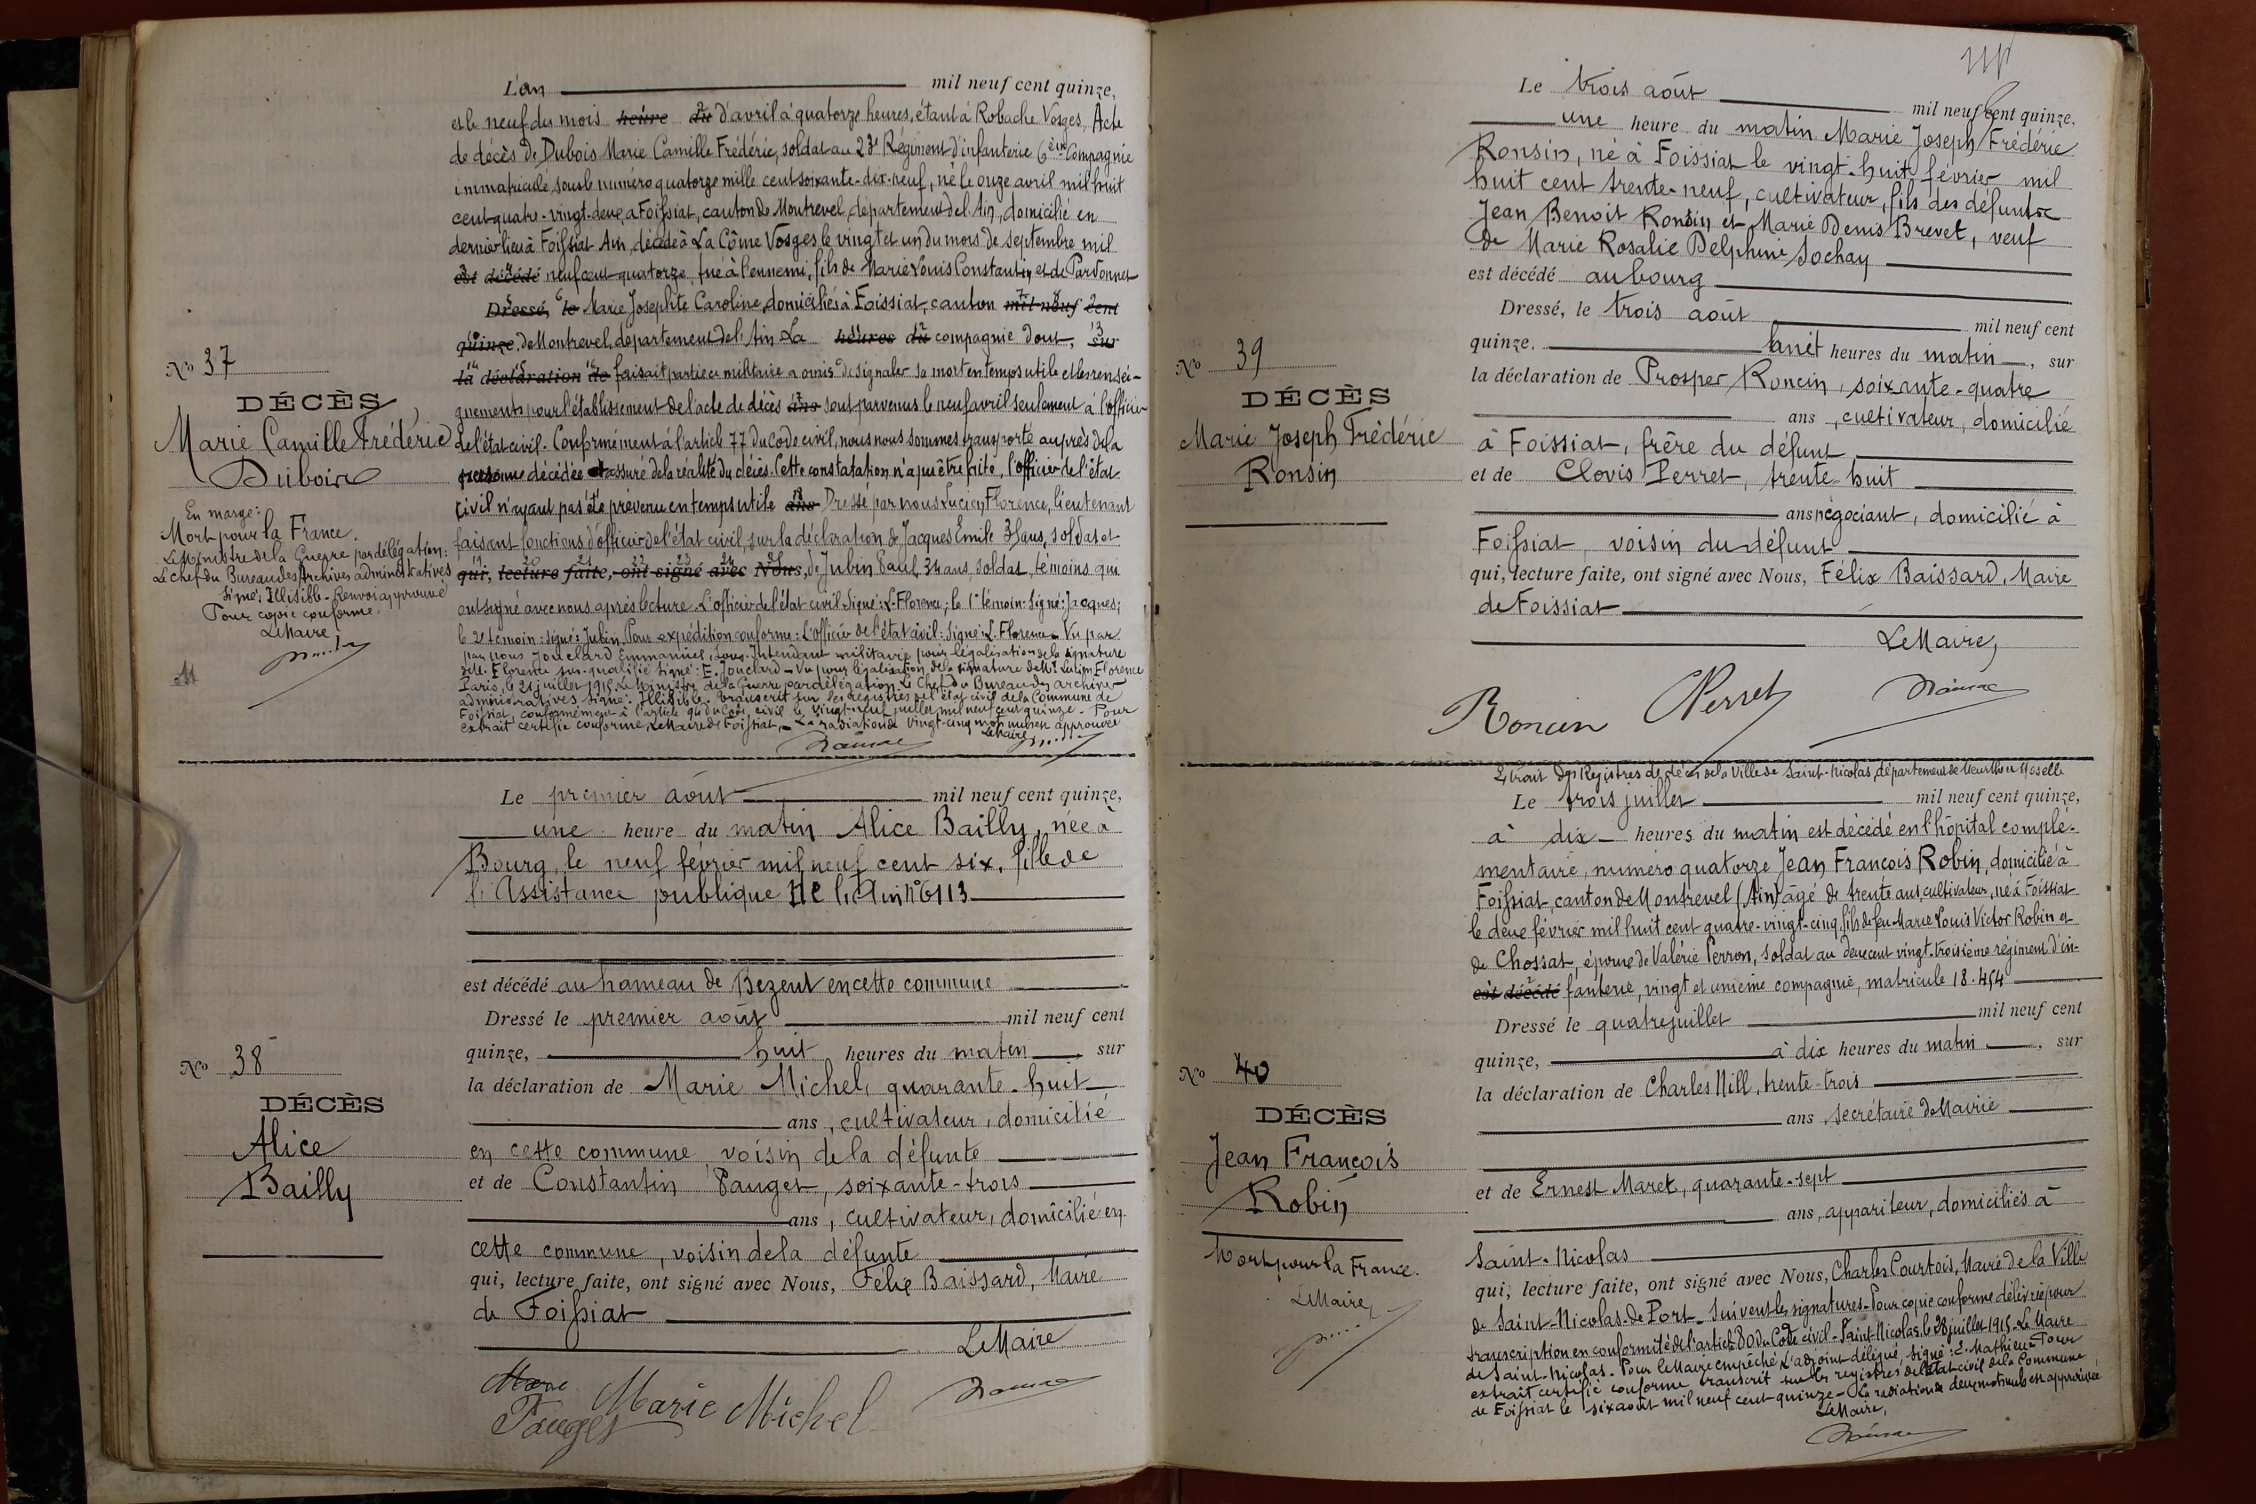 L'an mil neuf cent quinze,
et le neuf du mois heure du d'avril à quatorze heures, étant à Robache Vosges, Acte
de décès de Dubois Marie Camille Frédéric, soldat au 23e Régiment d'infanterie 6ème Compagnie
immatriculé sous le numéro quatorze mille cent soixante-dix-neuf, né le onze avril mil huit
cent quatre-vingt-deux à Foissiat, canton de Montrevel, département de l'Ain, domicilié en
dernier lieu à Foissiat Ain, décédé à La Côme Vosges le vingt et un du mois de septembre mil
est décédé neuf cent quatorze, tué à l'ennemi, fils de Marie Louis Constantin et de Pardonnet
Dressé, le Marie Josephte Caroline, domiciliés à Foissiat, canton mil neuf cent
quinze. de Montrevel, département de l'Ain. La heures du compagnie dont, sur
la déclaration de faisait partie ce militaire a omis de signaler sa mort en temps utile et les rensei-
gnements pour l'établissement de l'acte de décès ans sont parvenus le neuf avril seulement à l'officier
de l'état civil. Conformément à l'article 77 du Code civil, nous nous sommes transporté auprès de la
personne décédée et assuré de la réalité du décès. Cette constatation n'a pu être faite, l'officier de l'état
civil n'ayant pas été prévenu en temps utile ans Dressé par nous Lucien Florence, lieutenant
faisant fonctions d'officier de l'état civil, sur la déclaration de Jacques Emile 38 ans, soldat et
qui, lecture faite, ont signé avec Nous, de Jubin Paul, 34 ans, soldat, témoins qui
ont signé avec nous après lecture. L'officier de l'état civil Signé: L. Florence; le 1er témoin: Signé: Jacques;
le 2e témoin: Signé: Jubin. Pour expédition conforme: L'officier de l'état civil: Signé L. Florence. Vu par
par nous Jouclard Emmanuel, sous-Intendant militaire pour légalisation de la signature
de M. Florence sus-qualifié signé: E. Jouclard - Vu pour légalisation de la signature de Mr Lucien Florence
Paris, le 21 juillet 1915. Le Ministre de la Guerre, par délégation le Chef du Bureau des Archives
administratives Signé: Illisible. Transcrit sur les registres de l'état civil de la Commune de
Foissiat, conformément à l'article 94 du Code civil le vingt-neuf juillet mil neuf cent quinze. Pour
extrait certifié conforme, Le Maire de Foissiat, - La radiation de vingt-cinq mots nuls est approuvée
Le Maire
No 37
DÉCÈS
Marie Camille Frédéric
Dubois
En marge:
Mort pour la France.
Le Ministre de la Guerre par délégation:
Le chef du Bureau des Archives administratives
Signé: Illisible - Renvoi approuvé
Pour copie conforme.
Le Maire
Le premier août mil neuf cent quinze,
une heure du matin Alice Bailly, née à
Bourg, le neuf février mil neuf cent six, fille de
l'Assistance publique de l'Ain n° 6113
est décédé au hameau de Bezent en cette commune
Dressé le premier août mil neuf cent
quinze, huit heures du matin, sur
la déclaration de Marie Michel, quarante-huit
ans, cultivateur, domicilié
en cette commune, voisin de la défunte
et de Constantin Pauget, soixante-trois
ans, cultivateur, domicilié en
cette commune, voisin de la défunte
qui, lecture faite, ont signé avec Nous, Félix Baissard, Maire
de Foissiat
Le Maire
Pauget Marie Michel
No 38
DÉCÈS
Alice
Bailly
Le trois août mil neuf cent quinze,
une heure du matin Marie Joseph Frédéric
Ronsin, né à Foissiat le vingt-huit février mil
huit cent trente-neuf, cultivateur, fils des défunts
Jean Benoit Ronsin et Marie Denis Brevet, veuf
de Marie Rosalie Delphine Sochay
est décédé au bourg
Dressé, le trois août mil neuf cent
quinze. huit heures du matin, sur
la déclaration de Prosper Roncin, soixante-quatre
ans, cultivateur, domicilié
à Foissiat, frère du défunt
et de Clovis Perret, trente-huit
ans négociant, domicilié à
Foissiat, voisin du défunt
qui, lecture faite, ont signé avec Nous, Félix Baissard, Maire
de Foissiat
Le Maire,
Roncin CPerret
No 39
DÉCÈS
Marie Joseph Frédéric
Ronsin
Extrait des Registres de décès de la Ville de Saint-Nicolas, département de Meurthe et Moselle
Le trois juillet mil neuf cent quinze,
à dix heures du matin est décédé en l'hôpital complé-
mentaire, numéro quatorze Jean François Robin, domicilié à
Foissiat, canton de Montrevel (Ain) âgé de trente ans, cultivateur, né à Foissiat
le deux février mil huit cent quatre-vingt-cinq, fils de feu Marie Louis Victor Robin et
de Chossat, époux de Valérie Perron, soldat au deux cent vingt-troisième régiment d'in-
est décédé fanterie, vingt et unième compagnie, matricule 18.454
Dressé le quatre juillet mil neuf cent
quinze, à dix heures du matin, sur
la déclaration de Charles Nill, trente-trois
ans, secrétaire de Mairie
et de Ernest Maret, quarante-sept
ans, appariteur, domiciliés à
Saint-Nicolas
qui, lecture faite, ont signé avec Nous, Charles Courtois, Maire de la Ville
de Saint-Nicolas-de-Port. Suivent les signatures. Pour copie conforme délivrée pour
transcription en conformité de l'article 80 du Code civil. Saint-Nicolas, le 28 juillet 1915. Le Maire
de Saint-Nicolas. Pour le Maire empêché L'adjoint délégué, signé: E. Mathieu. Pour
extrait certifié conforme transcrit sur les registres de l'état civil de la Commune
de Foissiat le six août mil neuf cent quinze. La radiation de deux mots nuls est approuvée
Le Maire,
No 40
DÉCÈS
Jean François
Robin
Mort pour la France.
Le Maire,